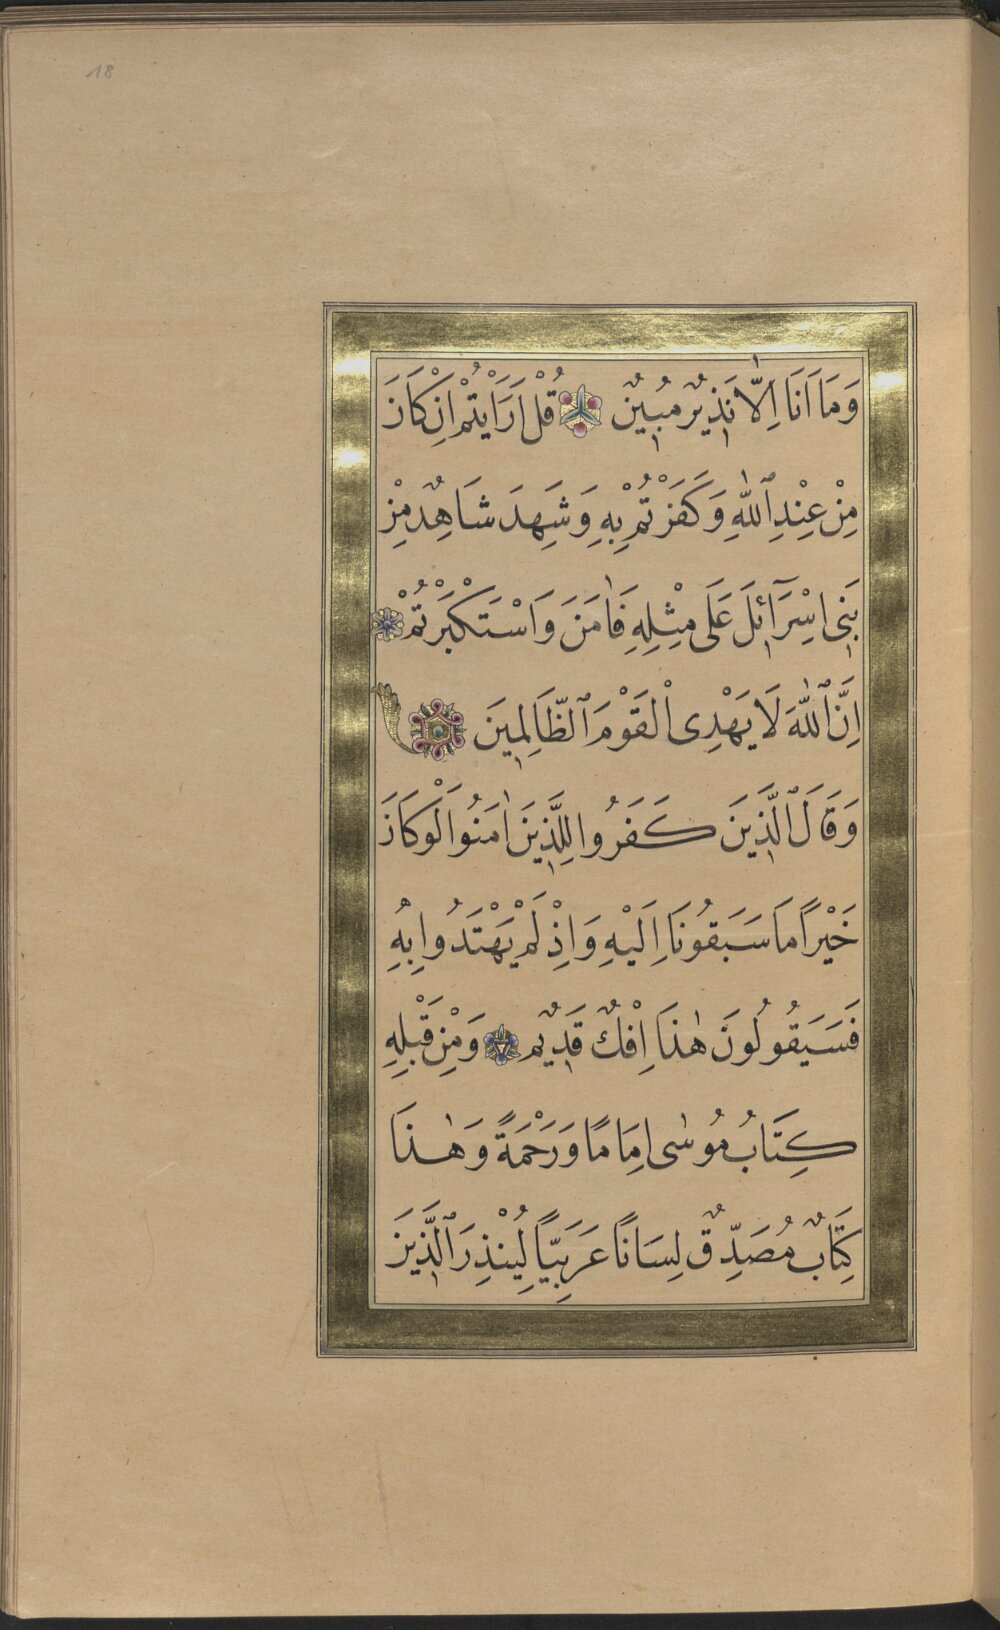 18
وَمَا اَنَا اِلَّا نَذِيرٌ مُبِينٌ قُلْ اَرَاَيْتُمْ اِنْ كَانَ
مِنْ عِنْدِ ٱللّٰهِ وَكَفَرْتُمْ بِهِ وَشَهِدَ شَاهِدٌ مِنْ
بَنِى اِسْرَآئِلَ عَلَى مِثْلِهِ فَاٰمَنَ وَاسْتَكْبَرْتُمْ
اِنَّ ٱللّٰهَ لَا يَهْدِى الْقَوْمَ ٱلظَّالِمِينَ
وَقَالَ ٱلَّذِينَ كَفَرُوا لِلَّذِينَ اٰمَنُوا لَوْ كَانَ
خَيْرًا مَا سَبَقُونَا اِلَيْهِ وَاِذْ لَمْ يَهْتَدُوا بِهِ
فَسَيَقُولُونَ هٰذَا اِفْكٌ قَدِيمٌ وَمِنْ قَبْلِهِ
كِتَابُ مُوسٰى اِمَامًا وَرَحْمَةً وَهٰذَا
كِتَابٌ مُصَدِّقٌ لِسَانًا عَرَبِيًّا لِيُنْذِرَ ٱلَّذِينَ